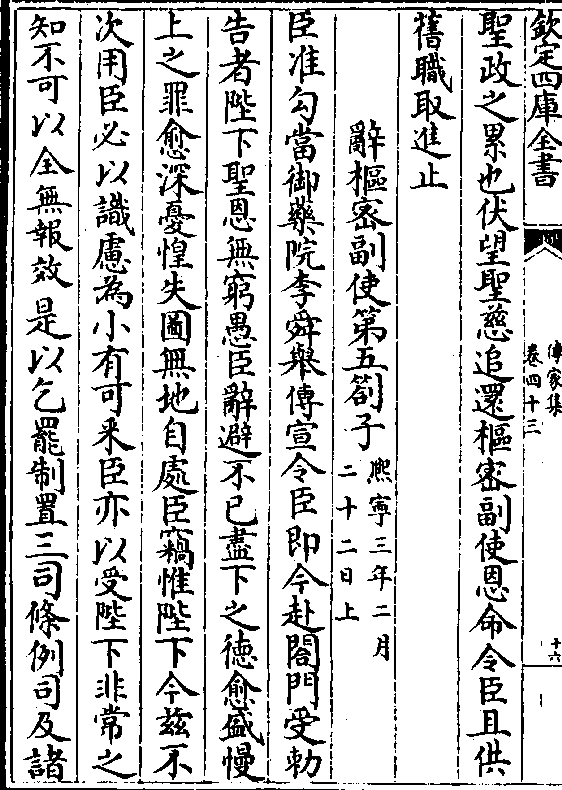 欽定四庫全書
傳家集
卷四十三
十六
聖政之累也伏望聖慈追還樞密副使恩命令臣且供
舊職取進止
辭樞密副使第五劄子熈寧三年二月二十二日上
臣准勾當御藥院李舜舉傳宣令臣即今赴閤門受勅
告者陛下聖恩無窮愚臣辭避不已盡下之徳愈盛慢
上之罪愈深憂惶失圖無地自處臣竊惟陛下今兹不
次用臣必以識慮為小有可采臣亦以受陛下非常之
知不可以全無報效是以乞罷制置三司條例司及諸